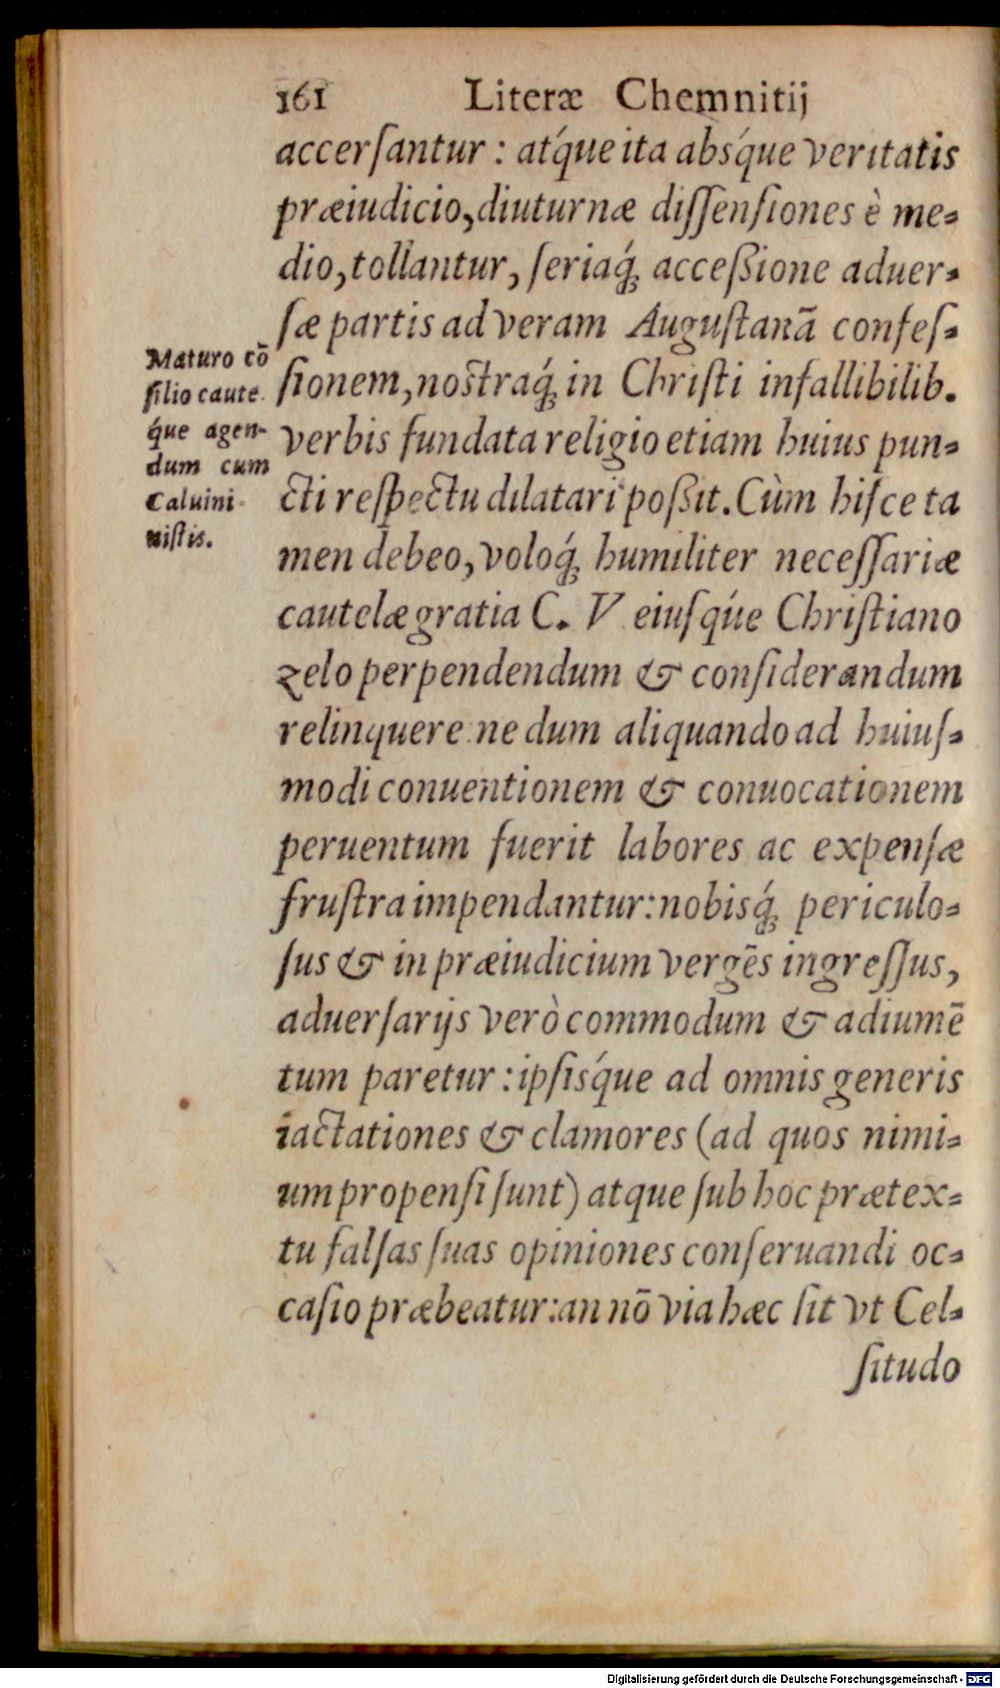 161 Literæ Chemnitij
accerſantur : atq́ue ita absq́ue veritatis
præiudicio, diuturnæ diſſenſiones è me-
dio, tollantur, ſeriaq́; acceßione aduer-
ſæ partis ad veram Auguſtanã confeſ-
ſionem, noſtraq́; in Chriſti infallibilib.
verbis fundata religio etiam huius pun-
cti reſpectu dilatari poßit. Cùm hiſce ta
men debeo, voloq́; humiliter neceſſariæ
cautelæ gratia C. V eiuſq́ue Chriſtiano
zelo perpendendum & conſiderandum
relinquere ne dum aliquando ad huiuſ-
modi conuentionem & conuocationem
peruentum fuerit labores ac expenſæ
fruſtra impendantur: nobisq́; periculo-
ſus & in præiudicium vergẽs ingreſſus,
aduerſarijs verò commodum & adiumẽ
tum paretur : ipſisq́ue ad omnis generis
iactationes & clamores (ad quos nimi-
um propenſi ſunt) atque ſub hoc prætex-
tu falſas ſuas opiniones conſeruandi oc-
caſio præbeatur: an nõ via hæc ſit vt Cel-
ſitudo
Maturo cõ
ſilio caute
q́ue agen-
dum cum
Caluini
niſtis.
Digitalisierung gefördert durch die Deutsche Forschungsgemeinschaft - DFG